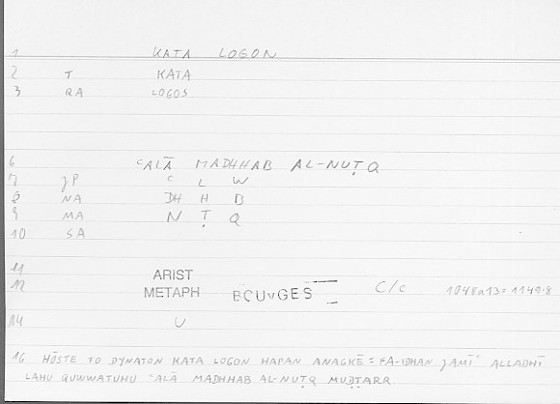 1 KATA LOGON
2 T KATA
3 QA LOGOS
6 ʿALĀ MADHHAB AL-NUṬQ
7 JP ʿ L W
8 NA DH H B
9 MA N Ṭ Q
10 SA
11 ARIST
12 METAPH BOUvGES C/c 1048a13=1149.8
14 U
16 HŌSTE TO DYNATON KATA LOGON HAPAN ANAGKĒ = FA-IDHAN JAMĪʿ ALLADHĪ
LAHU QUWWATUHU ʿALĀ MADHHAB AL-NUṬQ MUḌṬARR